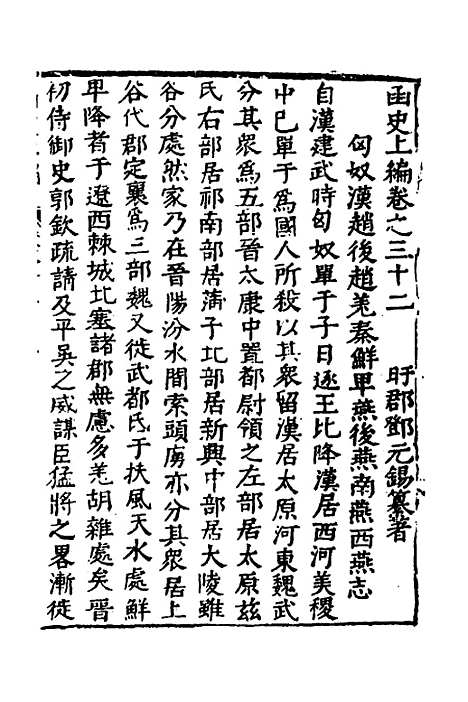 函史上編卷之三十二　　盱郡鄧元錫纂著
匈奴漢趙後趙羌秦鮮卑燕後燕南燕西燕志
自漢建武時匈奴單于子日逐王比降漢居西河美稷
中巳單于爲國人所殺以其衆留漢居太原河東魏武
分其衆爲五部晉太康中置都尉領之左部居太原兹
氏右部居祁南部居蒲子北部居新興中部居大陵雖
谷分處然家乃在晉陽汾水間索頭虜亦分其衆居上
谷代郡定襄爲三部魏又徙武都氐于扶風天水處鮮
卑降者于遼西棘城北塞諸郡無慮多羌胡雜處矣晉
初侍御史郭欽疏請及平吳之威謀臣猛將之畧漸徙